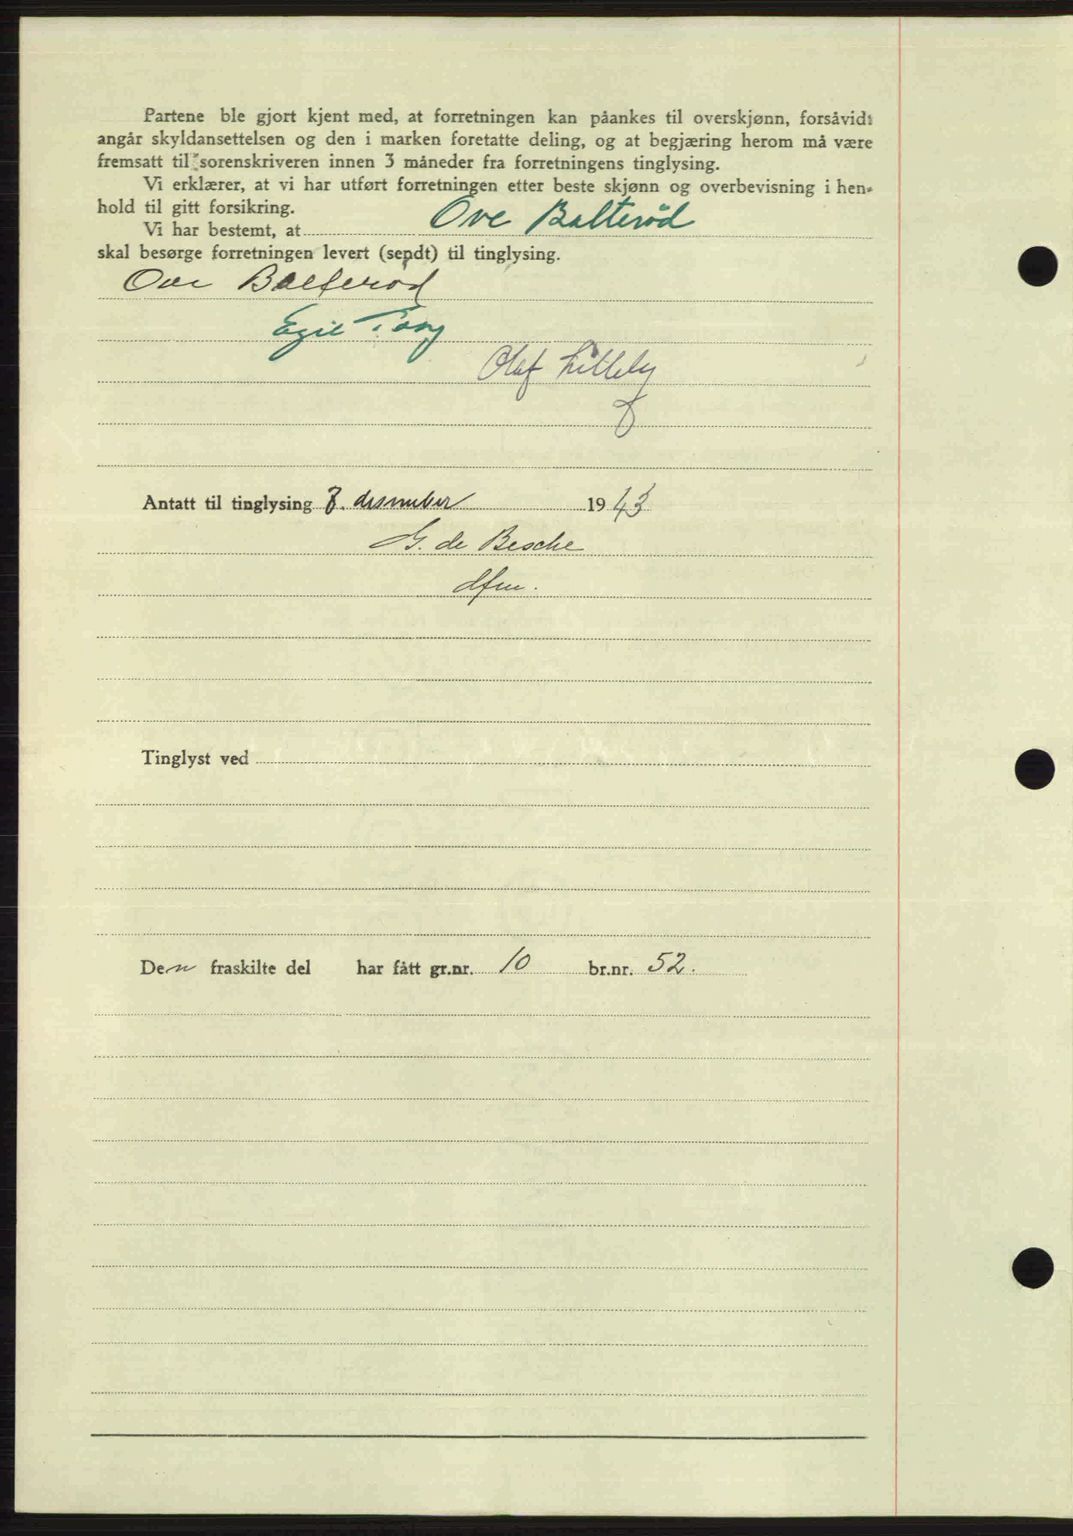 Partene ble gjort kjent med, at forretningen kan påankes til overskjønn, forsåvidt
angår skyldansettelsen og den i marken foretatte deling, og at begjæring herom må være
fremsatt til sorenskriveren innen 3 måneder fra forretningens tinglysing.
Vi erklærer, at vi har utført forretningen etter beste skjønn og overbevisning i hen-
hold til gitt forsikring.
Vi har bestemt, at Ove Balterød
skal besørge forretningen levert (sendt) til tinglysing.
Ove Balterød
Egil
Olaf Lilleby
Antatt til tinglysing 7. desember 1943
G. de Besche
dfm.
Tinglyst ved
Den fraskilte del har fått gr.nr. 10 br.nr. 52.